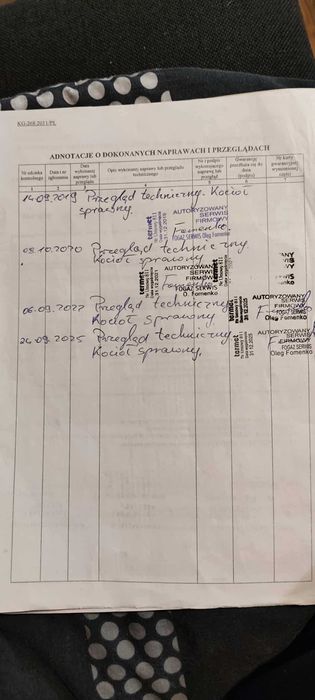 KG-268.2011/PL
ADNOTACJE O DOKONANYCH NAPRAWACH I PRZEGLĄDACH
Nr odcinka kontrolnego
Data i nr zgłoszenia
Data wykonanej naprawy lub przeglądu
Opis wykonanej naprawy lub przeglądu technicznego
Nr i podpis wykonującego naprawę lub przegląd
Gwarancję przedłuża się do dnia (podpis)
Nr karty gwarancyjnej wymienionej części
1 2 3 4 5 6 7
14-09.2019 Przegląd techniczny. Kocioł
sprawny.
termet
AUTORYZOWANY
SERWIS
FIRMOWY
Fomenko
FOGAZ SERWIS Oleg Fomenko
09.10.2020 Przegląd techniczny.
Kocioł sprawny
termet
AUTORYZOWANY
SERWIS
FIRMOWY
FOGAZ SERWIS
O. Fomenko
termet
06.09.2022 Przegląd techniczny
Kocioł sprawny
termet
31.12.2025
AUTORYZOWANY
SERWIS
FIRMOWY
FOGAZ SERWIS
Oleg Fomenko
26.09.2025 Przegląd techniczny
Kocioł sprawny.
termet
31.12.2025
AUTORYZOWANY
SERWIS
FIRMOWY
FOGAZ SERWIS
Oleg Fomenko